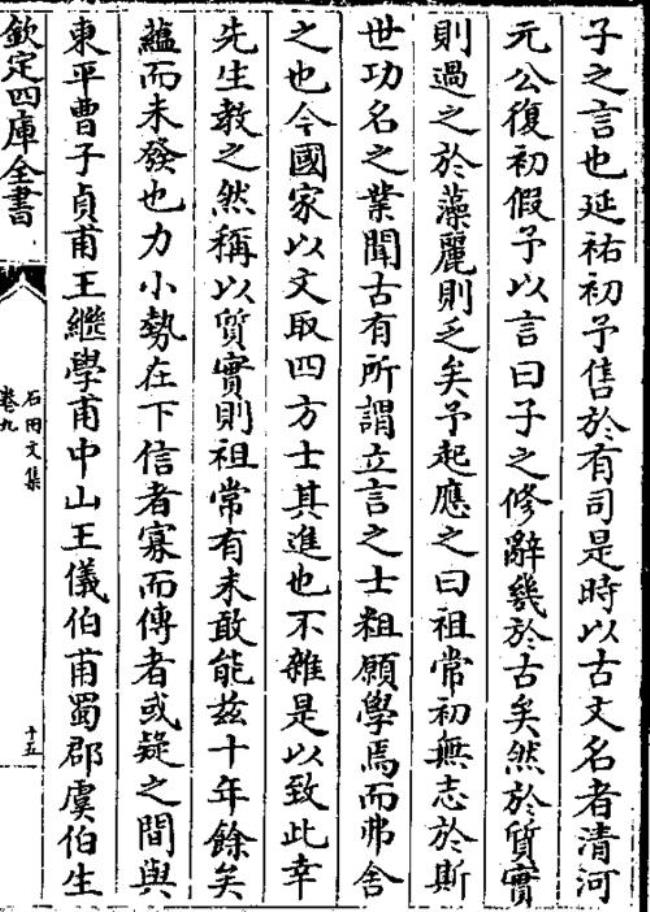 子之言也延祐初予售於有司是時以古文名者清河
元公復初假予以言曰子之修辭幾於古矣然於質實
則過之於藻麗則乏矣予起應之曰祖常初無志於斯
世功名之業聞古有所謂立言之士粗願學焉而弗舍
之也今國家以文取四方士其進也不雜是以致此幸
先生教之然稱以質實則祖常有未敢能兹十年餘矣
蘊而未發也力小勢在下信者寡而傳者或疑之間與
東平曹子貞甫王繼學甫中山王儀伯甫蜀郡虞伯生
欽定四庫全書
石田文集
卷九
十五